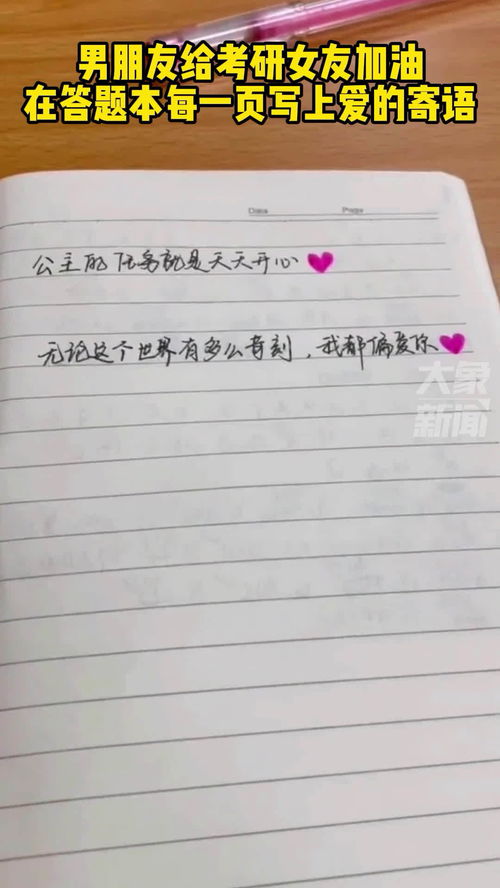 男朋友给考研女友加油
在答题本每一页写上爱的寄语
Date Page
公主的任务就是天天开心
无论这个世界有多么苛刻，我都偏爱你
大象
新闻